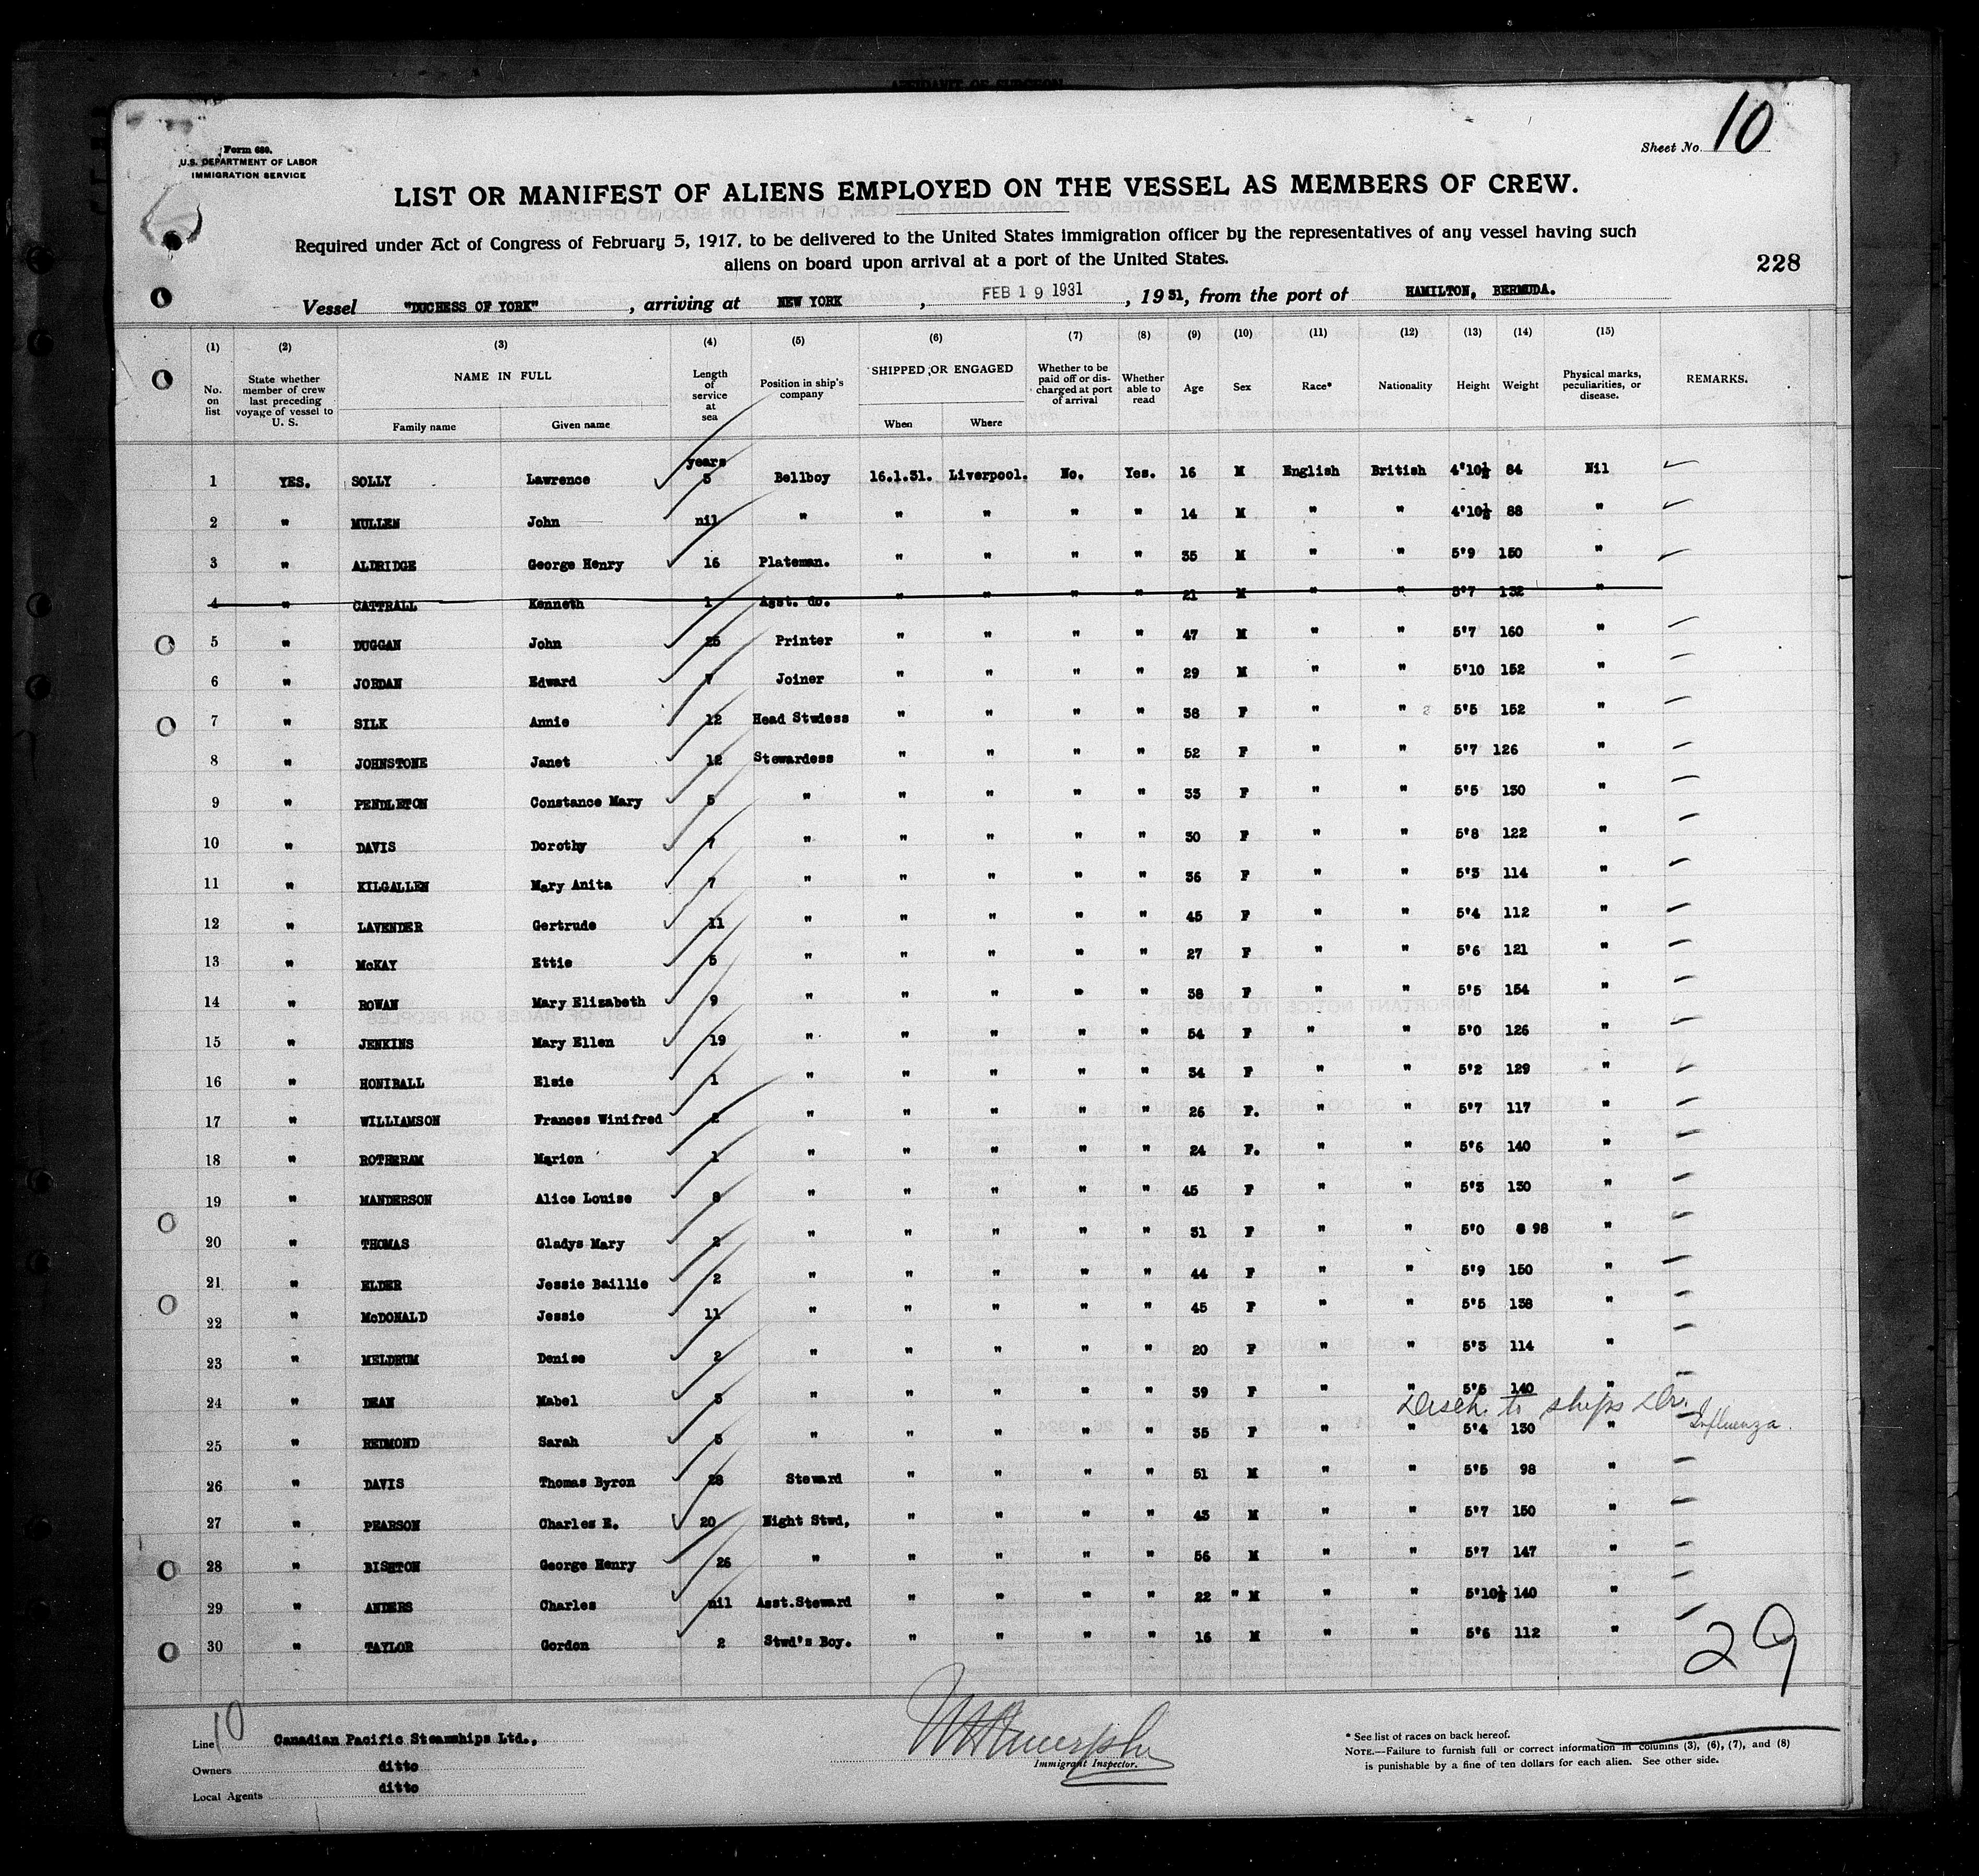 AFFIDAVIT OF SURGEON
Form 680.
U.S. DEPARTMENT OF LABOR
IMMIGRATION SERVICE
Sheet No. 10
LIST OR MANIFEST OF ALIENS EMPLOYED ON THE VESSEL AS MEMBERS OF CREW.
Required under Act of Congress of February 5, 1917, to be delivered to the United States immigration officer by the representatives of any vessel having such
aliens on board upon arrival at a port of the United States.
228
Vessel "DUCHESS OF YORK", arriving at NEW YORK, FEB 19 1931, 1931, from the port of HAMILTON, BERMUDA.
(1) (2) (3) (4) (5) (6) (7) (8) (9) (10) (11) (12) (13) (14) (15)
No. on list | State whether member of crew last preceding voyage of vessel to U. S. | NAME IN FULL | Length of service at sea | Position in ship's company | SHIPPED OR ENGAGED | Whether to be paid off or discharged at port of arrival | Whether able to read | Age | Sex | Race* | Nationality | Height | Weight | Physical marks, peculiarities, or disease. | REMARKS.
Family name | Given name | When | Where
years
1 YES. SOLLY Lawrence 5 Bellboy 16.1.31. Liverpool. No. Yes. 16 M English British 4'10½ 84 Nil
2 " MULLEN John nil " " " " " 14 M " " 4'10½ 88 "
3 " ALDRIDGE George Henry 16 Plateman. " " " " 35 M " " 5'9 150 "
4 " CATTRALL Kenneth 1 Asst. do. " " " " 21 M " " 5'7 132 "
5 " DUGGAN John 25 Printer " " " " 47 M " " 5'7 160 "
6 " JORDAN Edward 7 Joiner " " " " 29 M " " 5'10 152 "
7 " SILK Annie 12 Head Stwdess " " " " 38 F " " 5'5 152 "
8 " JOHNSTONE Janet 12 Stewardess " " " " 52 F " " 5'7 126 "
9 " PENDLETON Constance Mary 5 " " " " " 33 F " " 5'5 130 "
10 " DAVIS Dorothy 7 " " " " " 30 F " " 5'8 122 "
11 " KILGALLEN Mary Anita 7 " " " " " 36 F " " 5'3 114 "
12 " LAVENDER Gertrude 11 " " " " " 45 F " " 5'4 112 "
13 " McKAY Ettie 5 " " " " " 27 F " " 5'6 121 "
14 " ROWAN Mary Elizabeth 9 " " " " " 38 F " " 5'5 154 "
15 " JENKINS Mary Ellen 19 " " " " " 54 F " " 5'0 126 "
16 " HONIBALL Elsie 1 " " " " " 34 F " " 5'2 129 "
17 " WILLIAMSON Frances Winifred 2 " " " " " 26 F. " " 5'7 117 "
18 " ROTHERAM Marion 1 " " " " " 24 F. " " 5'6 140 "
19 " MANDERSON Alice Louise 8 " " " " " 45 F " " 5'3 130 "
20 " THOMAS Gladys Mary 2 " " " " " 31 F " " 5'0 98 "
21 " ELDER Jessie Baillie 2 " " " " " 44 F " " 5'9 150 "
22 " McDONALD Jessie 11 " " " " " 45 F " " 5'5 138 "
23 " MELDRUM Denise 2 " " " " " 20 F " " 5'3 114 "
24 " DEAN Mabel 5 " " " " " 39 F " " 5'5 140 "
Disch. to ships Dr. Influenza.
25 " REDMOND Sarah 5 " " " " " 35 F " " 5'4 130 "
26 " DAVIS Thomas Byron 28 Steward " " " " 51 M " " 5'5 98 "
27 " PEARSON Charles E. 20 Night Stwd, " " " " 43 M " " 5'7 150 "
28 " BISHTON George Henry 26 " " " " " 56 M " " 5'7 147 "
29 " ANDERS Charles nil Asst.Steward " " " " 22 " M " " 5'10½ 140 "
30 " TAYLOR Gordon 2 Stwd's Boy. " " " " 16 M " " 5'6 112 "
29
10
Line Canadian Pacific Steamships Ltd.,
Owners ditto
Local Agents ditto
Immigrant Inspector.
* See list of races on back hereof.
NOTE.—Failure to furnish full or correct information in columns (3), (6), (7), and (8)
is punishable by a fine of ten dollars for each alien. See other side.